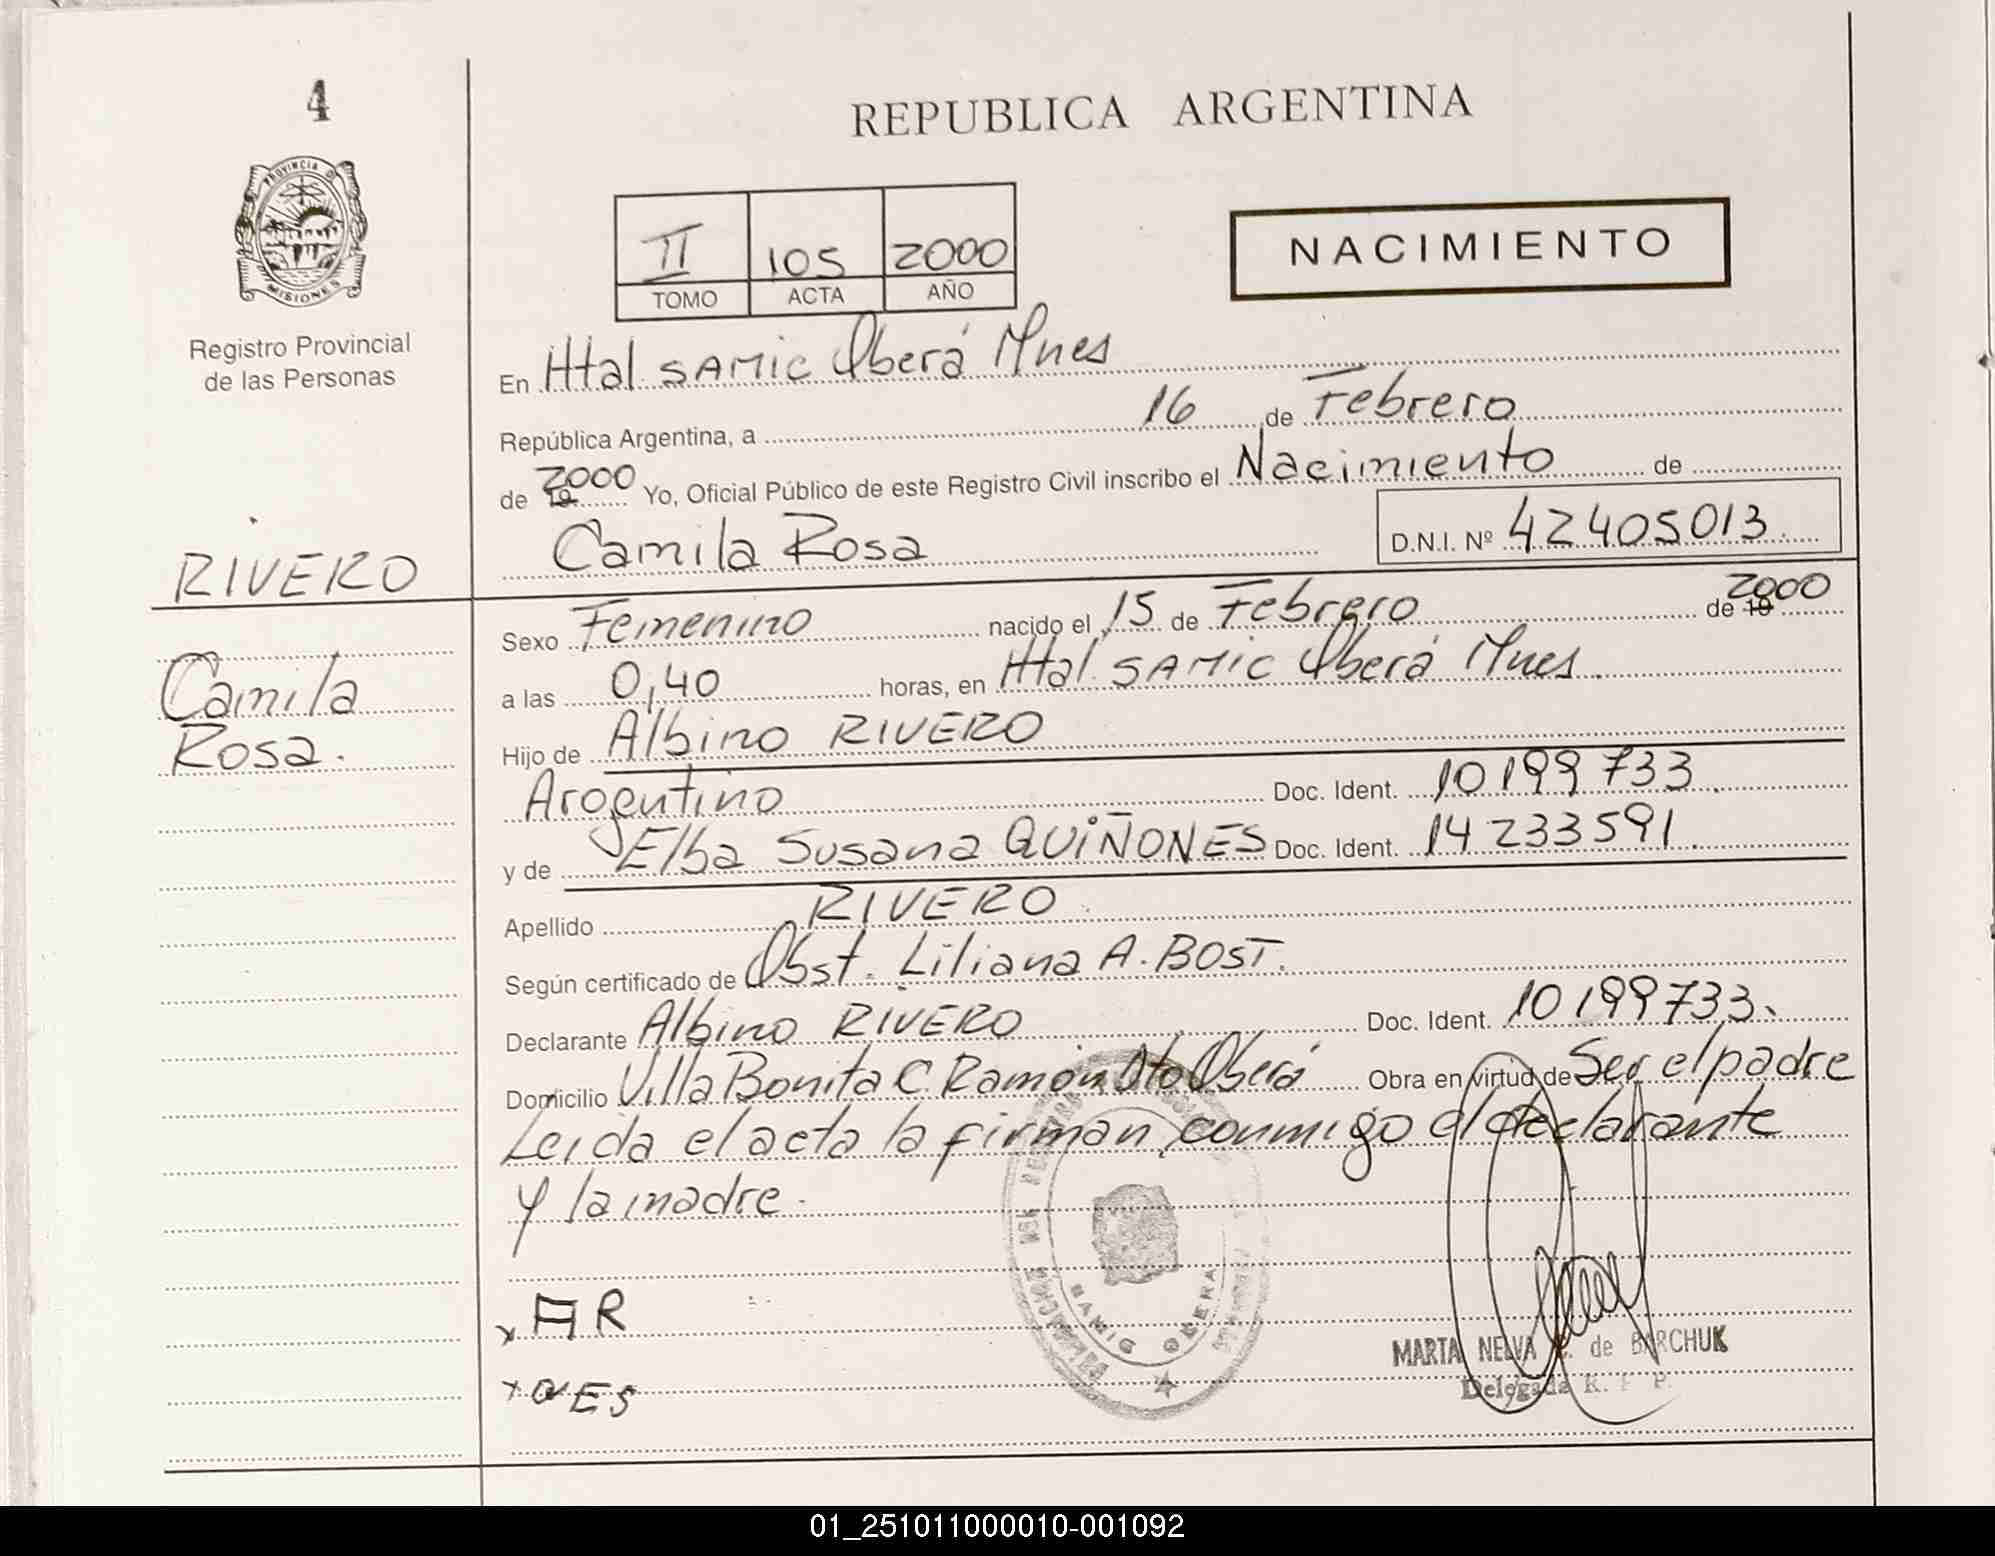 4
REPUBLICA ARGENTINA
PROVINCIA D
MISIONES
Registro Provincial
de las Personas
II 105 2000
TOMO ACTA AÑO
NACIMIENTO
En Htal SAMIC Oberá Mnes
República Argentina, a 16 de Febrero
de 19 2000 Yo, Oficial Público de este Registro Civil inscribo el Nacimiento de
Camila Rosa D.N.I. Nº 42405013.
RIVERO
Camila
Rosa.
Sexo Femenino nacido el 15 de Febrero de 19 2000
a las 0,40 horas, en Htal SAMIC Oberá Mnes.
Hijo de Albino RIVERO
Argentino Doc. Ident. 10199733
y de Elba Susana QUIÑONES Doc. Ident. 14233591.
Apellido RIVERO
Según certificado de Obst. Liliana A. BOST.
Declarante Albino RIVERO Doc. Ident. 10199733.
Domicilio Villa Bonita C. Ramón Dto Oberá Obra en virtud de Ser el padre
Leida el acta la firman conmigo el declarante
y la madre.
x AR
x QES
SAMIC OBERA
MARTA NELVA de BARCHUK
Delegada R. P.
01_251011000010-001092